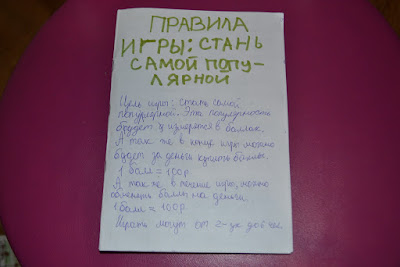 ПРАВИЛА
ИГРЫ: СТАНЬ
САМОЙ ПОПУ-
ЛЯРНОЙ
Цель игры: стать самой
популярной. Эта популярность
будет измерятся в баллах.
А так же в конце игры можно
будет за деньги купить баллы.
1 балл = 100р.
А так же в течение игры, можно
обменять баллы на деньги.
1 балл = 100р.
Играть могут от 2-ух до 6 чел.